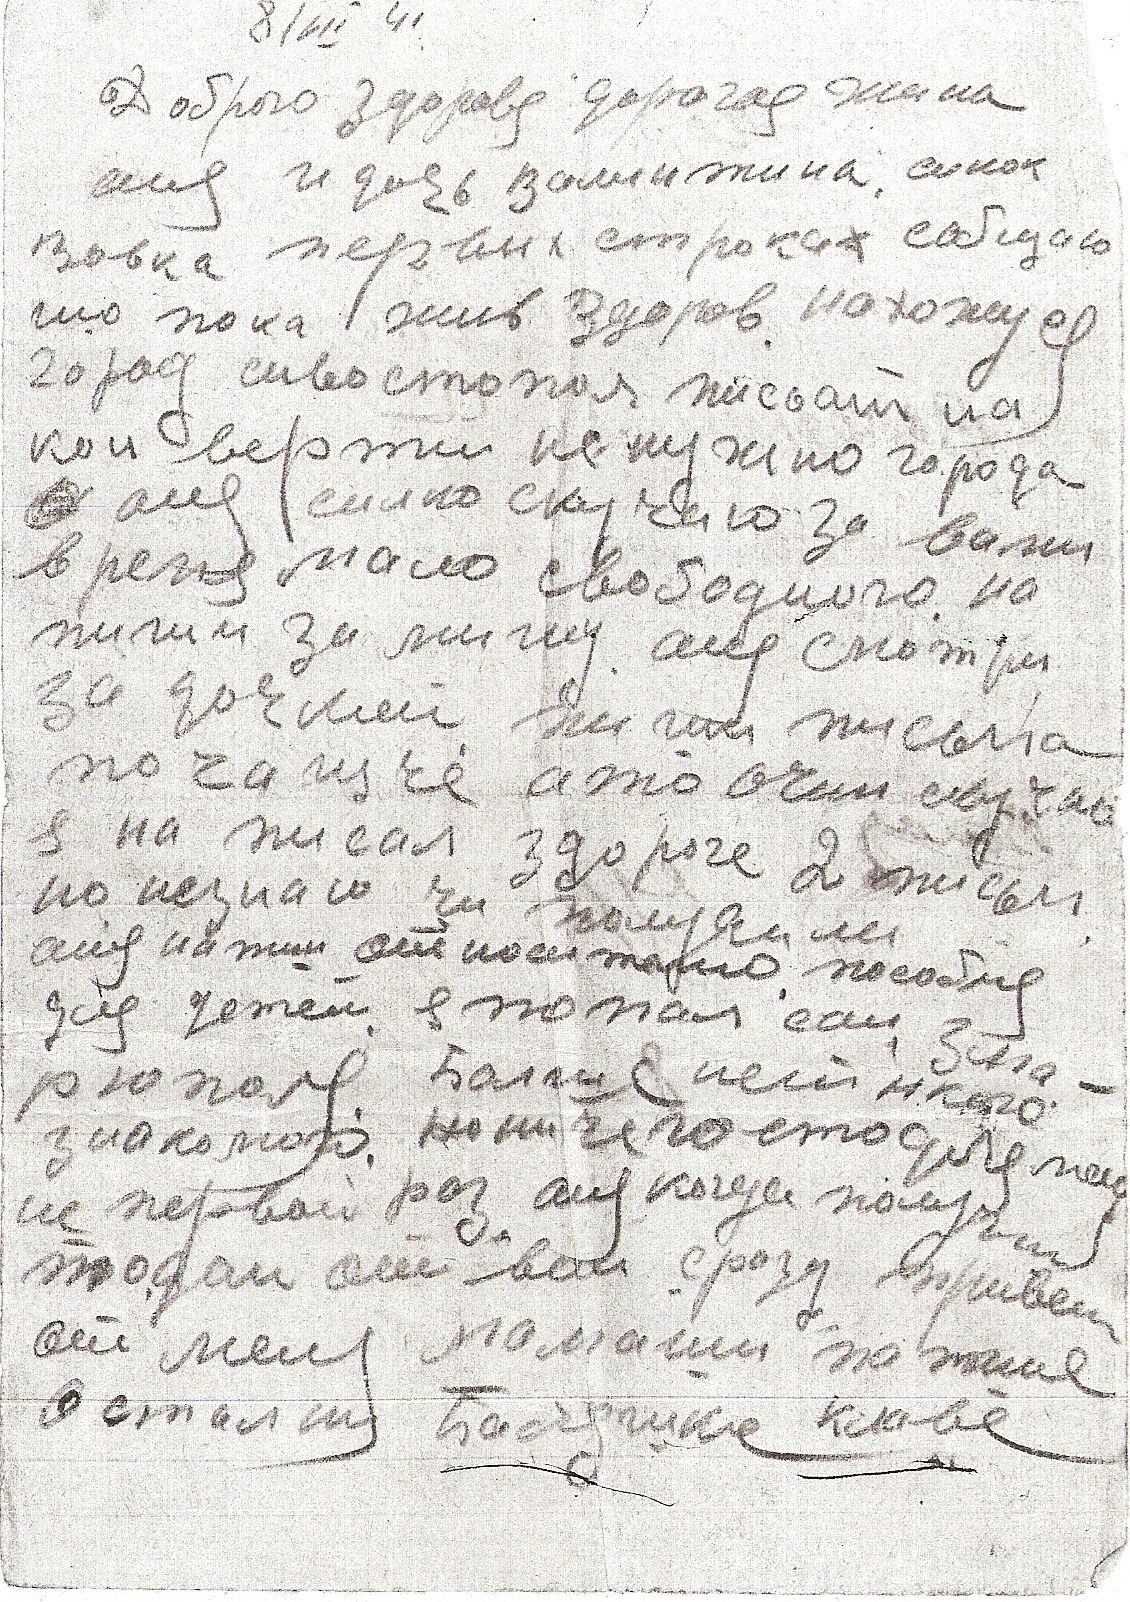 8/VIII 41
Доброго здоровя дорогая жина
аня и дочь валинжина. синок
вовка первых строках сабщаю
шо пока жив здоров. нахожус
город сивостополь писать на
кон верти не нужно города
аня силко скучаю за вами
время мало свободного. на
пиши за мишу. аня смотри
за дочкой пиши письма
по чащче ато очин скучаю
я на писал здороге 2 письм.
но незнаю чи получили
аня напиши относитално пособия
для детей. я попал сам, зма-
рюполя Балше нет никого
знакомого. но ничего ето для мине
не первой раз. аня когда получиш
тодаи от вет сразу привет
от меня мамаши папаше
Осталния Бабушке клаве